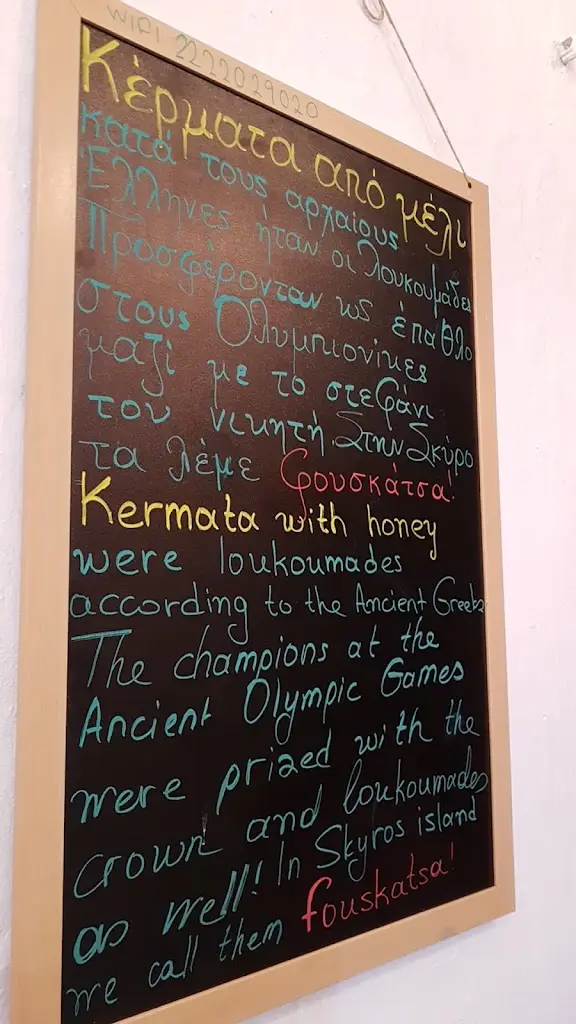 WIFI 2222029020
Κέρματα από μέλι
κατά τους αρχαίους
Έλληνες ήταν οι λουκουμάδες
Προσφέρονταν ως έπαθλο
στους Ολυμπιονίκες
μαζί με το στεφάνι
του νικητή. Στην Σκύρο
τα λέμε φουσκάτσα!
Kermata with honey
were loukoumades
according to the Ancient Greeks
The champions at the
Ancient Olympic Games
were prized with the
crown and loukoumades
as well! In Skyros island
we call them fouskatsa!